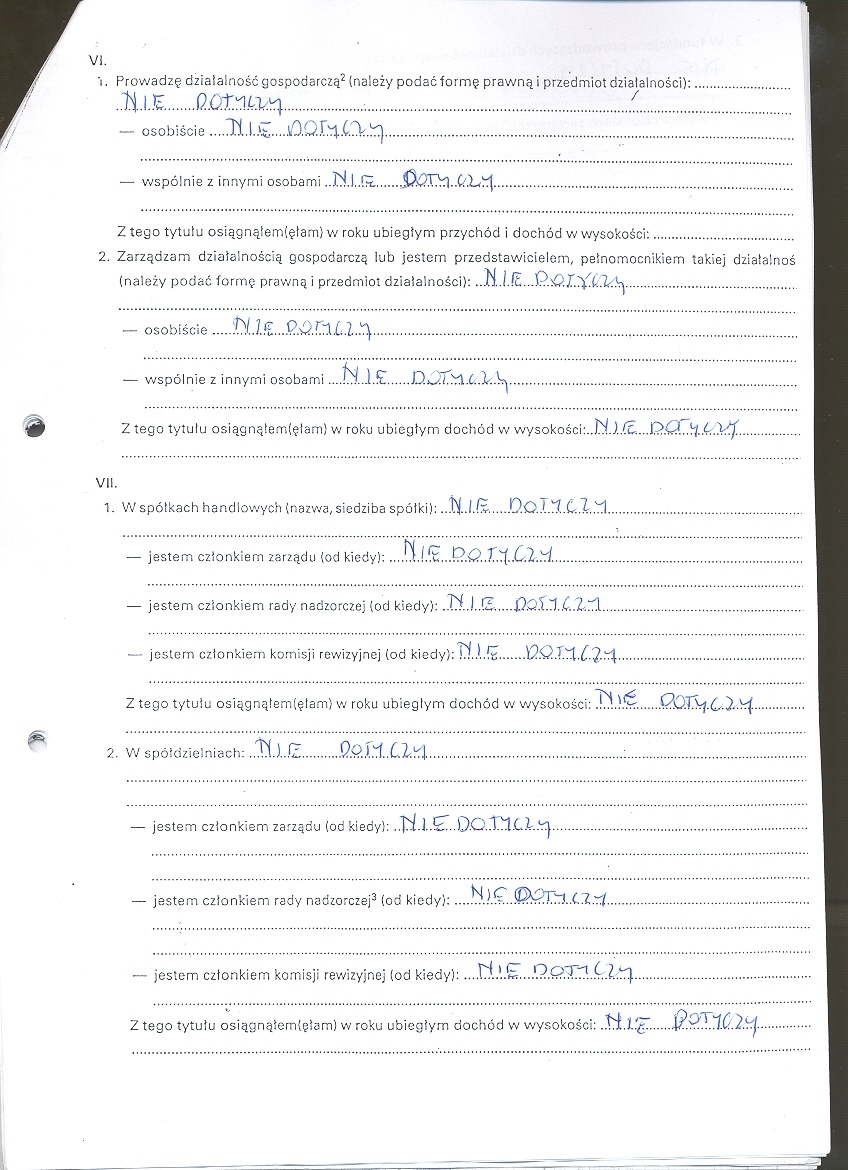 VI.
1. Prowadzę działalność gospodarczą² (należy podać formę prawną i przedmiot działalności):
NIE DOTYCZY
— osobiście NIE DOTYCZY
— wspólnie z innymi osobami NIE DOTYCZY
Z tego tytułu osiągnąłem(ęłam) w roku ubiegłym przychód i dochód w wysokości:
2. Zarządzam działalnością gospodarczą lub jestem przedstawicielem, pełnomocnikiem takiej działalnoś
(należy podać formę prawną i przedmiot działalności): NIE DOTYCZY
— osobiście NIE DOTYCZY
— wspólnie z innymi osobami NIE DOTYCZY
Z tego tytułu osiągnąłem(ęłam) w roku ubiegłym dochód w wysokości: NIE DOTYCZY
VII.
1. W spółkach handlowych (nazwa, siedziba spółki): NIE DOTYCZY
— jestem członkiem zarządu (od kiedy): NIE DOTYCZY
— jestem członkiem rady nadzorczej (od kiedy): NIE DOTYCZY
— jestem członkiem komisji rewizyjnej (od kiedy): NIE DOTYCZY
Z tego tytułu osiągnąłem(ęłam) w roku ubiegłym dochód w wysokości: NIE DOTYCZY
2. W spółdzielniach: NIE DOTYCZY
— jestem członkiem zarządu (od kiedy): NIE DOTYCZY
— jestem członkiem rady nadzorczej³ (od kiedy): NIE DOTYCZY
— jestem członkiem komisji rewizyjnej (od kiedy): NIE DOTYCZY
Z tego tytułu osiągnąłem(ęłam) w roku ubiegłym dochód w wysokości: NIE DOTYCZY